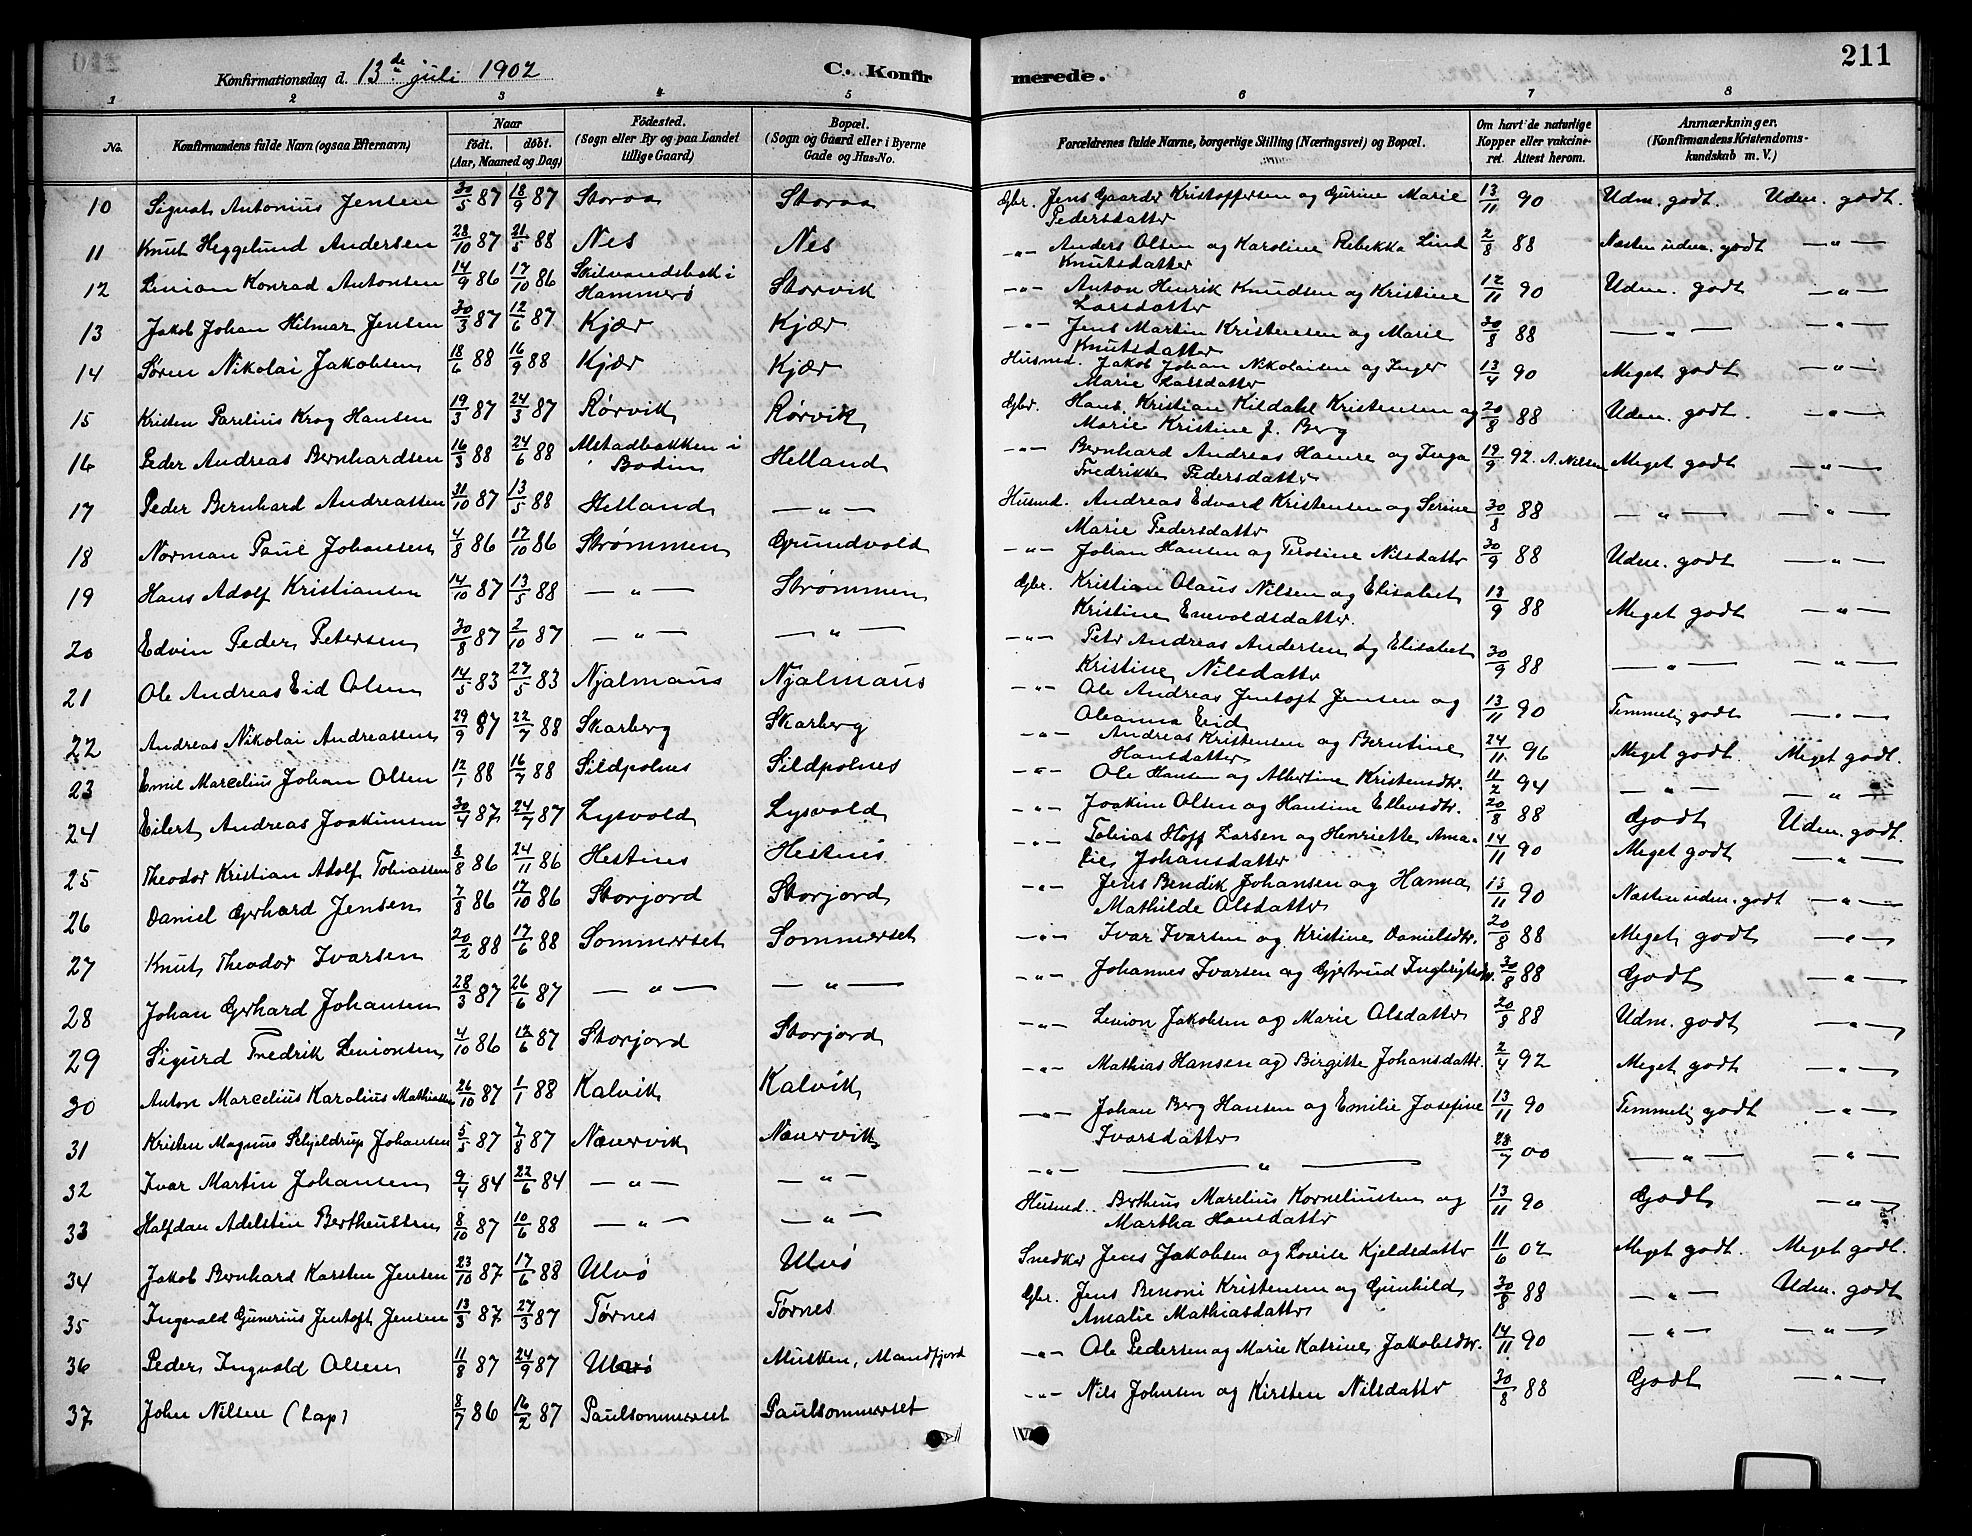 Konfirmationsdag d. 13de juli 1902
C. Konfirmerede.
211
1 2 3 4 5 6 7 8
No.
Konfirmandens fulde Navn (ogsaa Efternavn)
Naar
født. døbt.
(Aar, Maaned og Dag)
Födested.
(Sogn eller By og paa Landet
tillige Gaard)
Bopæl.
(Sogn og Gaard eller i Byerne
Gade og Hus-No.
Forældrenes fulde Navne, borgerlige Stilling (Næringsvei) og Bopæl.
Om havt de naturlige
Kopper eller vakcineret.
Attest herom.
Anmærkninger.
(Konfirmandens Kristendomskundskab
m. V.)
10 Signat Antonius Jensen 30/5 87 18/9 87 Storaa Storaa Gbr. Jens Gaarder Kristoffersen og Gurine Marie 13/11 90 Udm. godt. Udm. godt.
Pedersdatter
11 Knut Heggelund Andersen 28/10 87 21/5 88 Nes Nes -"- Anders Olsen og Karoline Rebekka Lind 2/8 88 Næsten udm. godt -"-
Knutsdatter
12 Lenion Konrad Antonsen 14/9 86 17/10 86 Skilvandsbak i Storvik -"- Anton Henrik Knudsen og Kristine 12/11 90 Udm. godt -"-
Hammerø Larsdatter
13 Jakob Johan Hilmar Jensen 30/3 87 12/6 87 Kjær Kjær -"- Jens Martin Kristensen og Marie 30/8 88 -"- -"-
Knutsdatter
14 Søren Nikolai Jakobsen 18/6 88 16/9 88 Kjær Kjær Husmd. Jakob Johan Nikolaisen og Inger 13/4 90 Meget godt -"-
Marie Larsdatter
15 Kristen Parelius Krog Hansen 19/3 87 24/3 87 Rørvik Rørvik Gbr. Hans Kristian Kildahl Kristensen og 20/8 88 Udm. godt. -"-
Marie Kristine J. Berg
16 Peder Andreas Bernhardsen 16/3 88 24/6 88 Alstadbakken i Helland -"- Bernhard Andreas Hansen og Inga 19/9 92. A. Nilsen Meget godt -"-
Bodin Fredrikke Pedersdatter
17 Peder Bernhard Andreassen 31/10 87 13/5 88 Helland -"- Husmd. Andreas Edvard Kristensen og Serine 30/8 88 -"- -"-
Marie Pedersdatter
18 Norman Paul Johansen 4/8 86 17/10 86 Strømmen Grundvold -"- Johan Hansen og Peroline Nilsdatter 30/9 88 Udm. godt -"-
19 Hans Adolf Kristiansen 14/10 87 13/5 88 -"- Strømmen Gbr. Kristian Olaus Nilsen og Elisabet 13/9 88 Meget godt -"-
Kristine Enevoldsdatter.
20 Edvin Peder Petersen 30/8 87 2/10 87 -"- -"- -"- Peter Andreas Andersen og Elisabet 30/9 88 -"- -"-
Kristine Nilsdatter
21 Ole Andreas Eid Olsen 14/5 83 27/5 83 Njalmaus Njalmaus -"- Ole Andreas Jentoft Jensen og 13/11 90 Temmelig godt -"-
Oleanna Eid
22 Andreas Nikolai Andreassen 29/9 87 22/7 88 Skarberg Skarberg -"- Andreas Kristensen og Berntine 24/11 96 Meget godt Meget godt.
Hansdatter
23 Emil Marcelius Johan Olsen 12/1 88 16/7 88 Sildpolnes Sildpolnes -"- Ole Hansen og Albertine Kristensdtr. 11/2 94 -"- -"-
24 Eilert Andreas Joakimsen 30/4 87 24/7 87 Lysvold Lysvold -"- Joakim Olsen og Hansine Ellensdtr. 20/8 88 Godt Udm. godt.
25 Theodor Kristian Adolf Tobiassen 8/8 86 24/11 86 Hestnes Hestnes -"- Tobias Hoff Larsen og Henriette Ama- 14/11 90 Meget godt -"-
lie Johansdatter
26 Daniel Gerhard Jensen 7/8 86 17/10 86 Storjord Storjord -"- Jens Bendik Johansen og Hanna 13/11 90 Næsten udm. godt -"-
Mathilde Olsdatter
27 Knut Theodor Ivarsen 20/2 88 17/6 88 Sommerset Sommerset -"- Ivar Ivarsen og Kristine Danielsdtr. 20/8 88 Meget godt -"-
28 Johan Gerhard Johansen 28/3 87 26/6 87 -"- -"- -"- Johannes Ivarsen og Gjertrud 30/8 88 Godt -"-
29 Sigurd Fredrik Lenionsen 4/10 86 12/6 87 Storjord Storjord -"- Lenion Jakobsen og Marie Olsdatter 20/8 88 Udm. godt -"-
30 Anton Marcelius Karolius Mathiassen 26/10 87 1/1 88 Kalvik Kalvik -"- Mathias Hansen og Birgitte Johansdatter 2/4 92 Meget godt -"-
31 Kristen Magnus Schjeldrup Johansen 5/5 87 7/8 87 Nænrvik Nænrvik -"- Johan Berg Hansen og Emilie Josefine 13/11 90 Temmelig godt -"-
Ivarsdatter
32 Ivar Martin Johansen 9/4 84 22/6 84 -"- -"- -"- -"- 28/7 00 -"- -"-
33 Halfdan Adelstin Bertheussen 8/10 87 10/6 88 -"- -"- Husmd. Bertheus Marelius Korneliussen og 13/11 90 Godt -"-
Martha Hansdatter
34 Jakob Bernhard Karsten Jensen 23/10 87 17/6 88 Ulvø Ulvø Snedker Jens Jakobsen og Lovise Kjeldsdatter 11/6 02 Meget godt. Meget godt.
35 Ingvald Gunerius Jentoft Jensen 13/3 87 27/3 87 Tørnes Tørnes Gbr. Jens Benoni Kristensen og Gunhild 30/8 88 -"- Udm. godt
Amalie Mathiasdatter
36 Peder Ingvald Olsen 11/8 87 24/9 87 Ulvø Musken, Mandfjord -"- Ole Pedersen og Marie Katrine Jakobsdtr. 14/11 90 -"- -"-
37 John Nilsen (Lap) 8/7 86 16/2 87 Paulsommerset Paulsommerset -"- Nils Johnsen og Kirsten Nilsdatter 30/8 88 Godt -"-